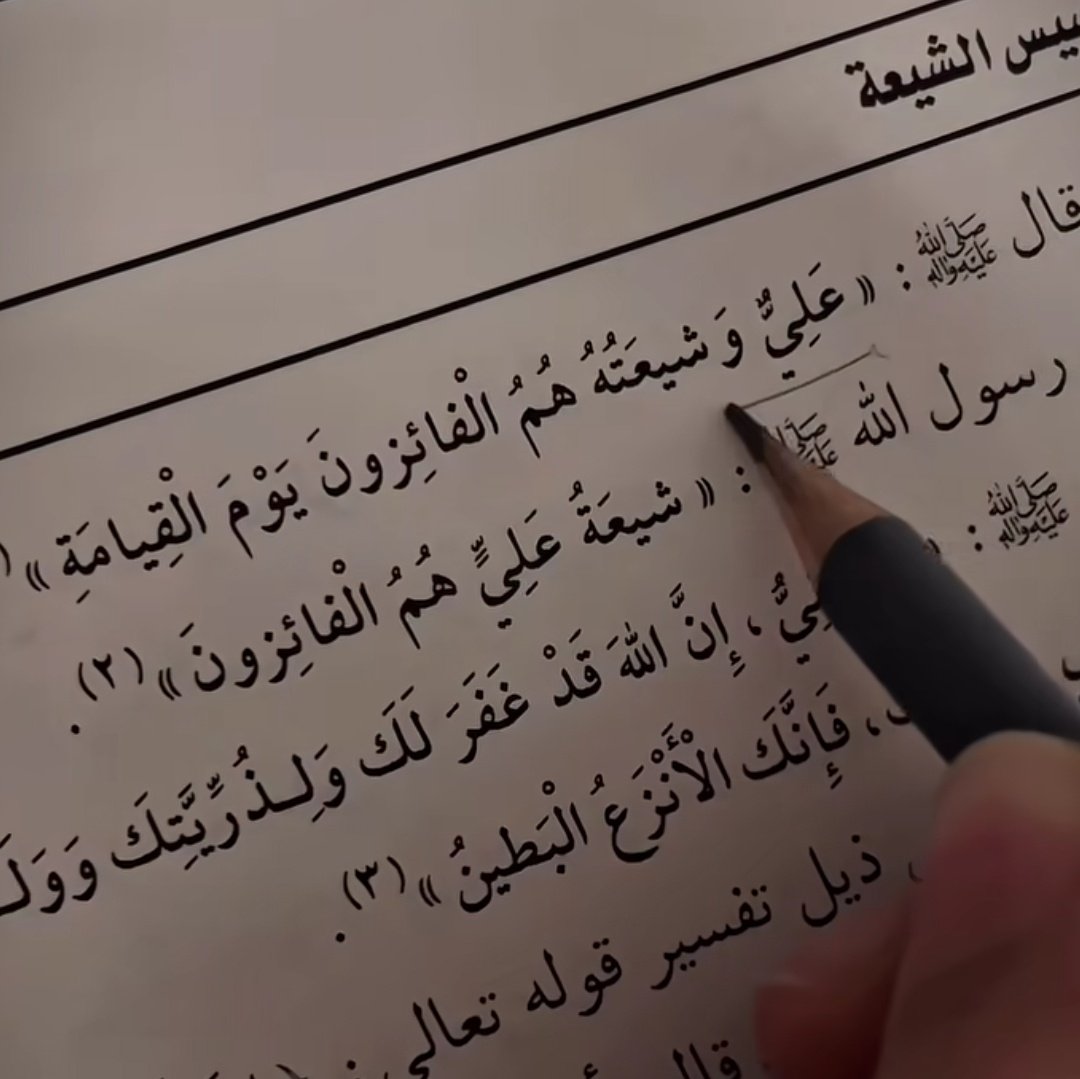 الشيعة
قال ﷺ : « عَلِيٌّ وَشيعَتُهُ هُمُ الْفائِزونَ يَوْمَ الْقِيامَةِ » (
رسول الله صَلَّى اللهُ : « شيعَةُ عَلِيٍّ هُمُ الْفائِزونَ » (٢) .
صَلَّى اللهُ عَلَيْهِ وَآلِهِ : « ، إِنَّ اللهَ قَدْ غَفَرَ لَكَ وَلِذُرِّيَّتِكَ
، فَإِنَّكَ الْأَنْزَعُ الْبَطينُ » (٣) .
، ذيل تفسير قوله تعالى :
قال